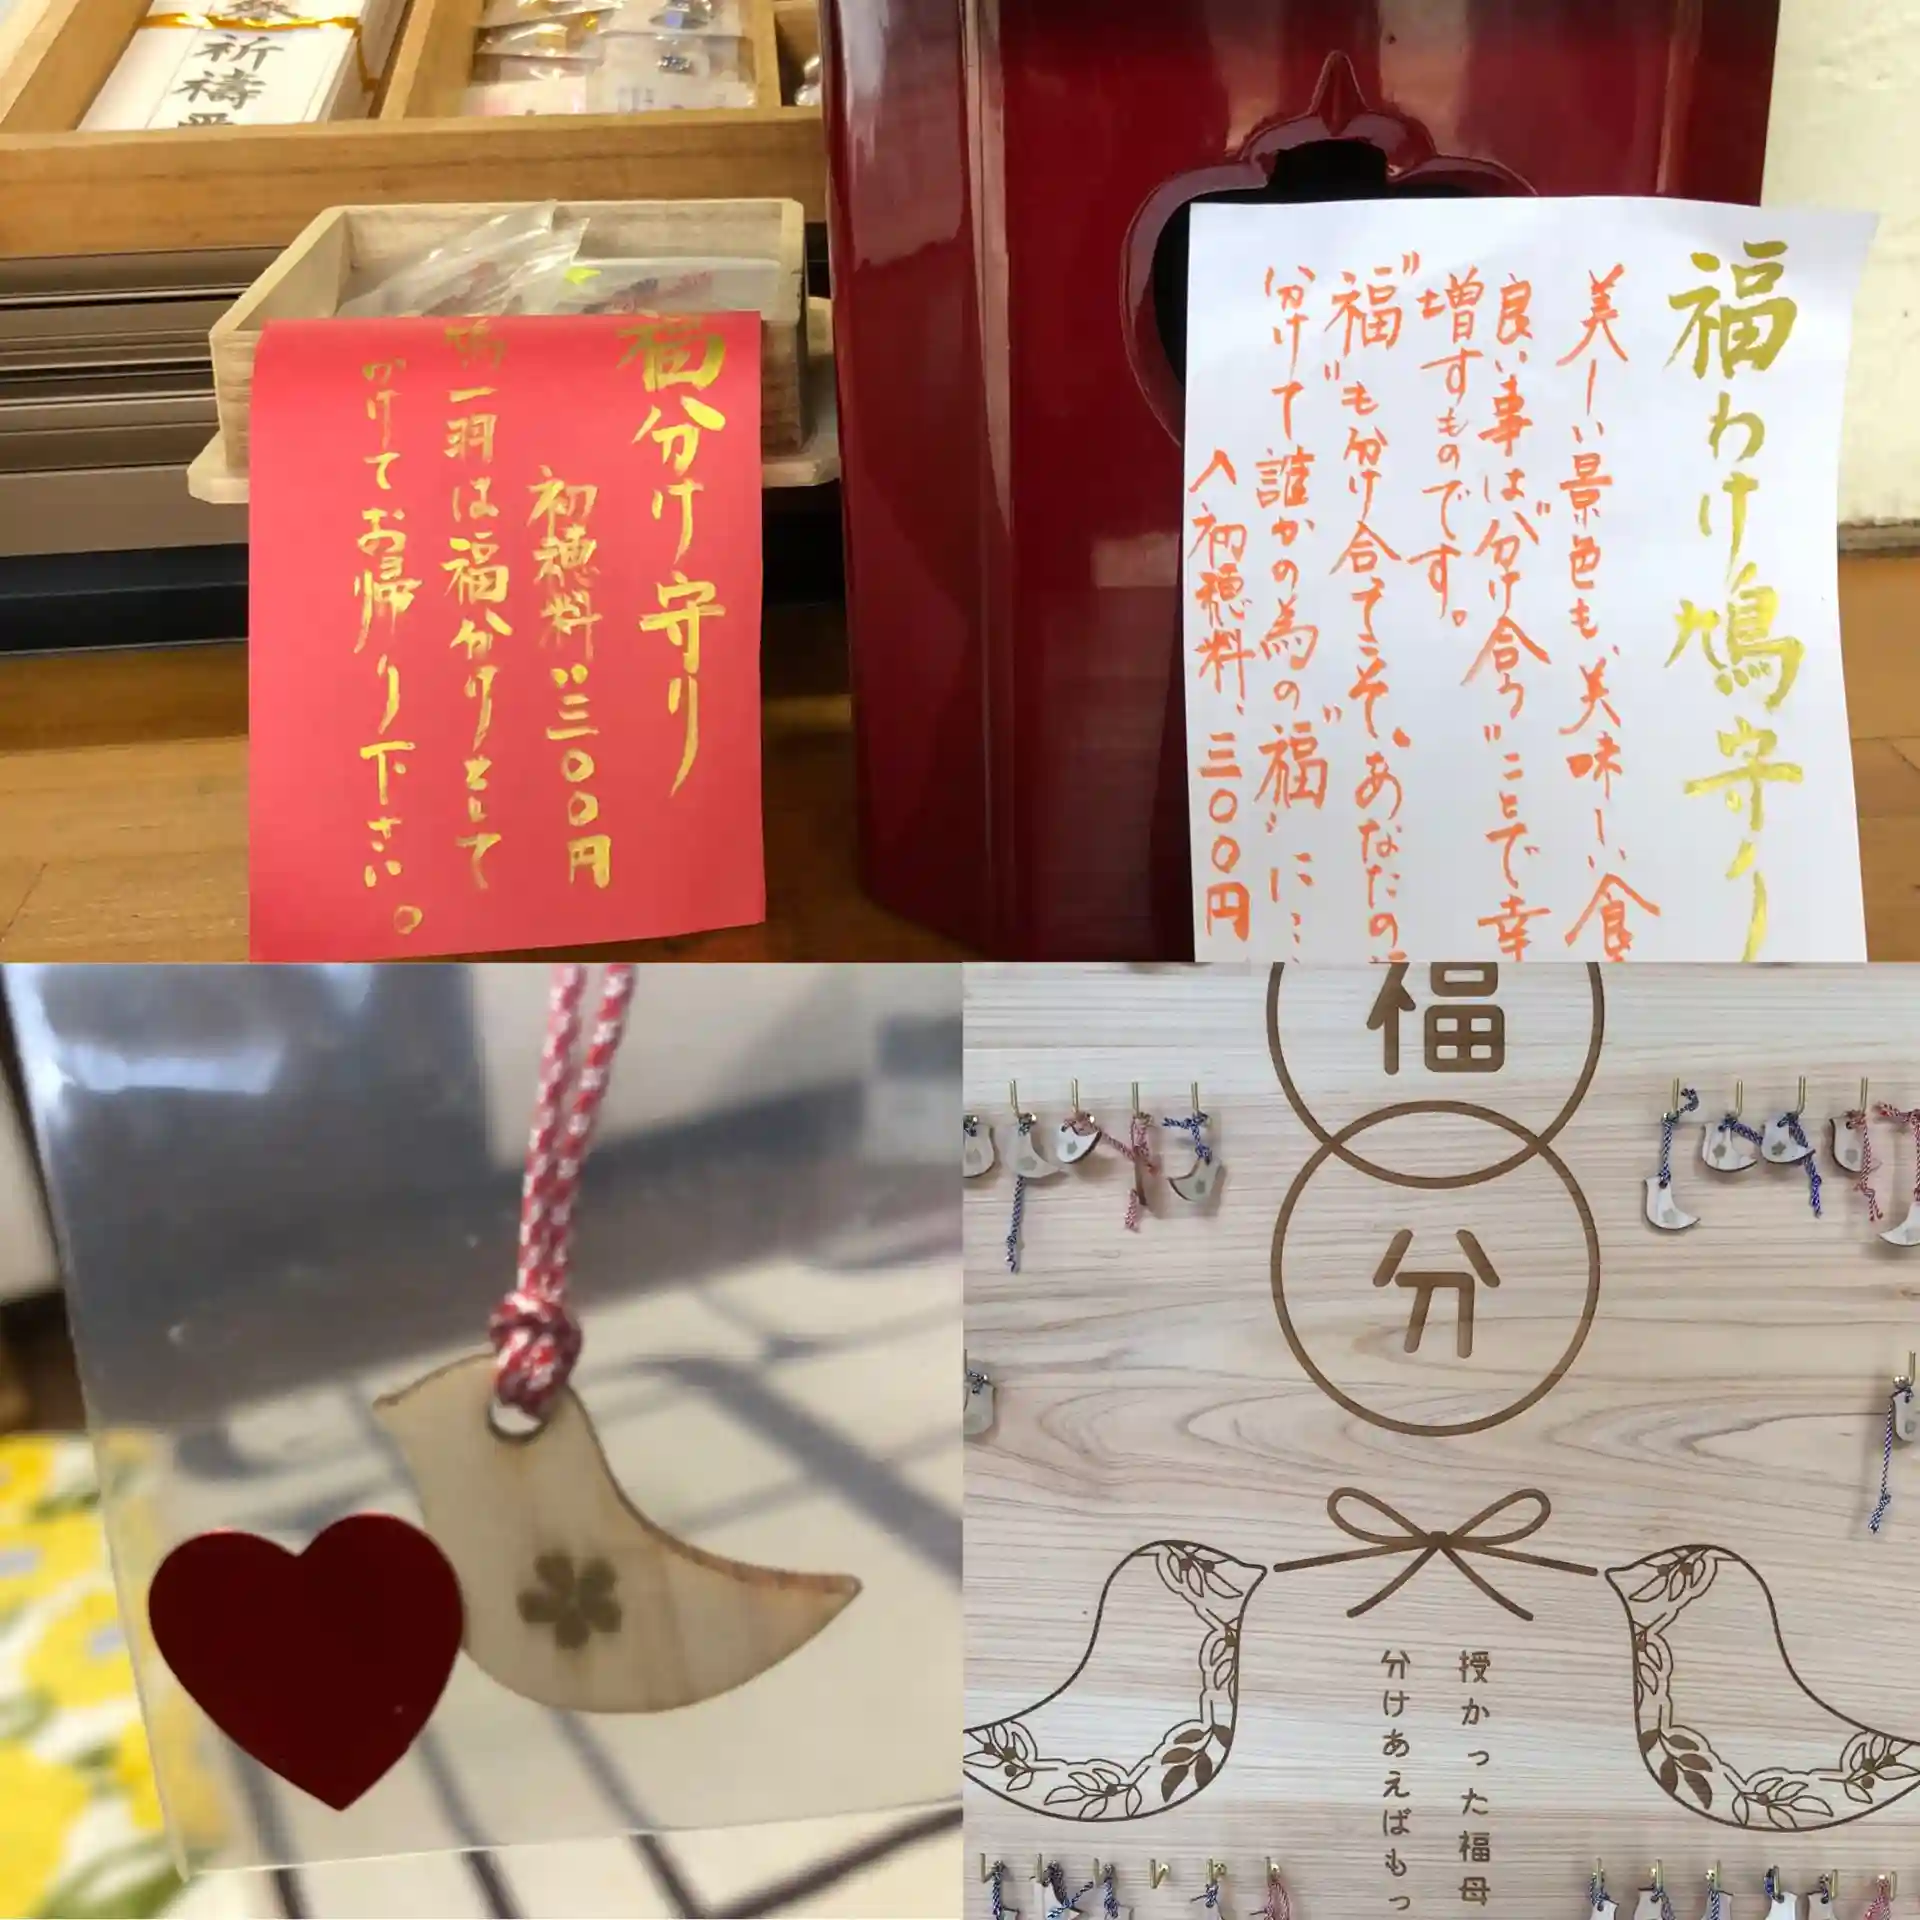 祈祷
福分け守り
初穂料三〇〇円
鳩一羽は福分けとして
かけてお帰り下さい。
福わけ鳩守り
美しい景色も、美味しい食
良い事は〝分け合う〟ことで幸
増すものです。
〝福〟も分け合てこそ、あなたの
分けて誰かの為の〝福〟に…
初穂料、三〇〇円
福
分
授かった福母
分けあえばもっ